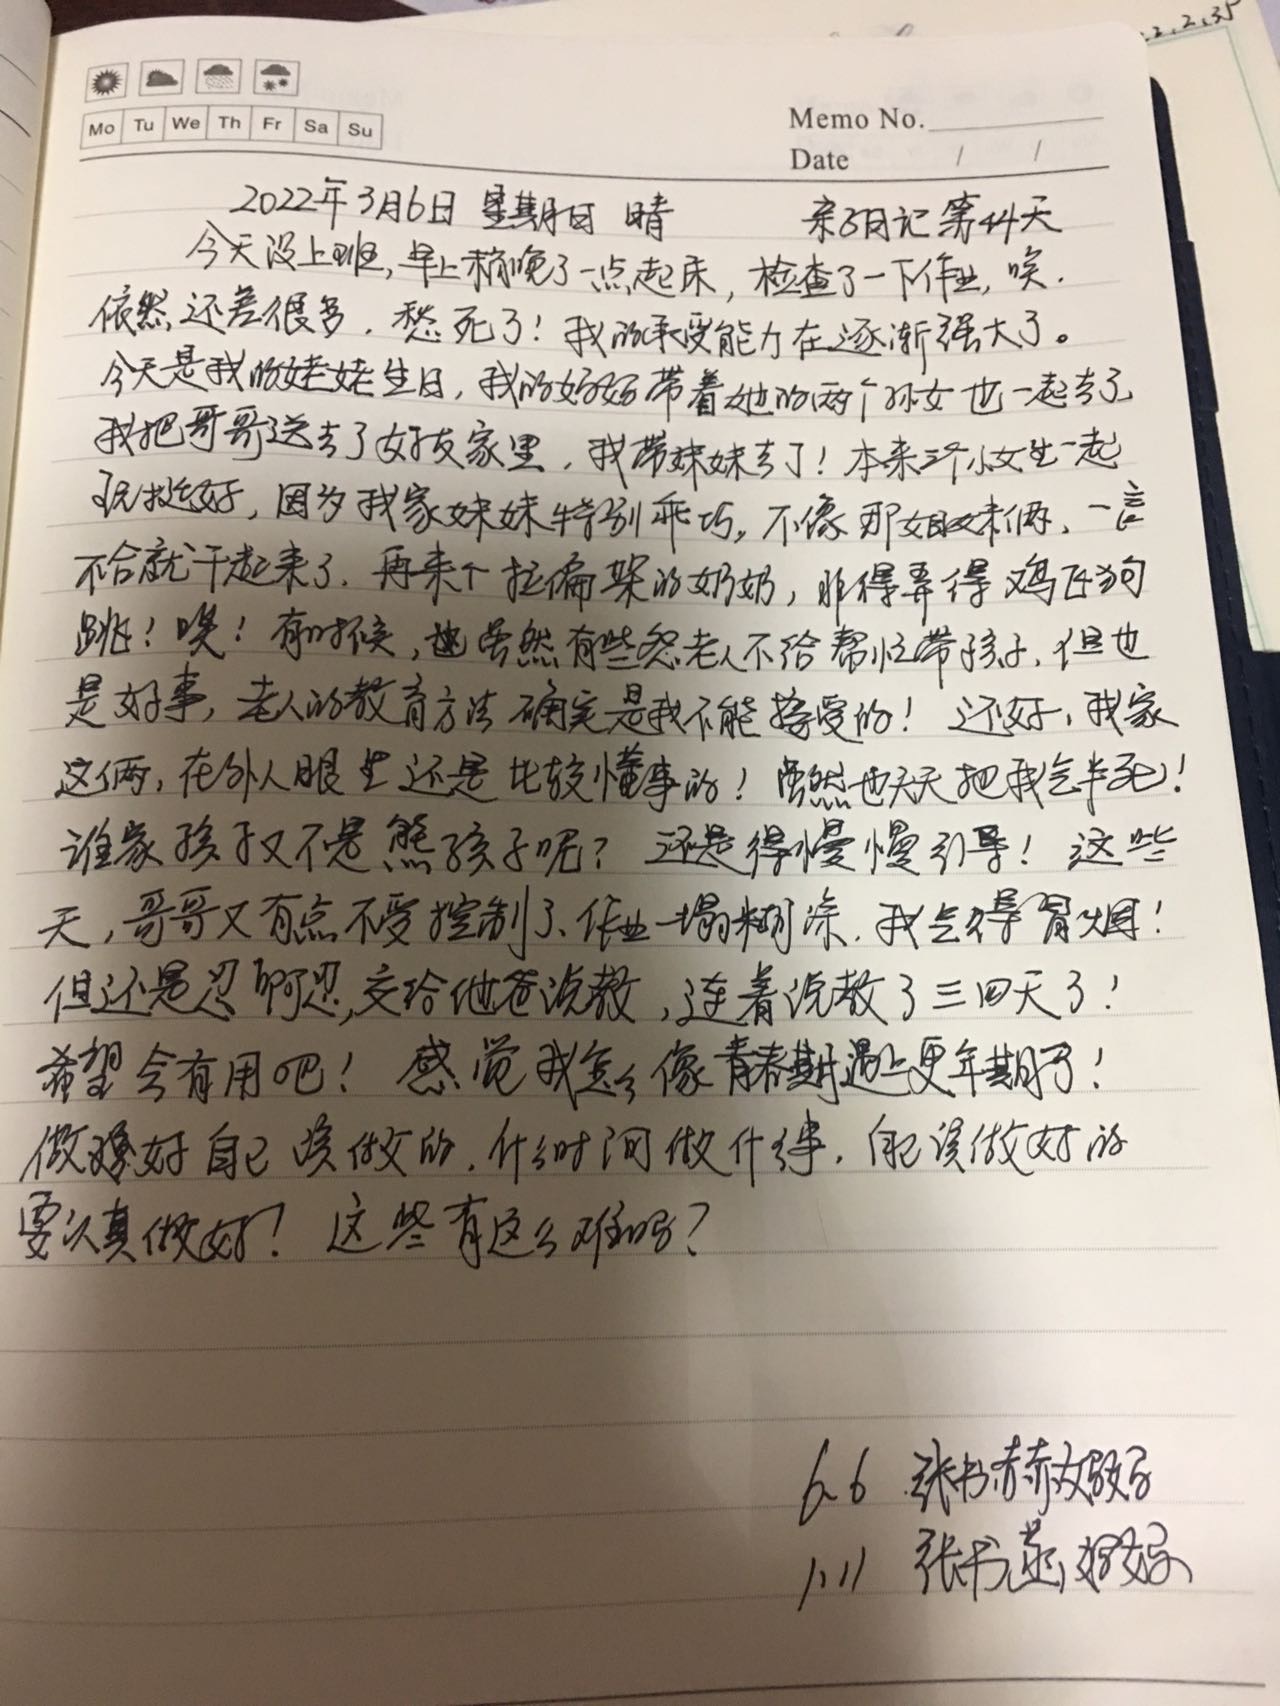 2.2.35
Mo Tu We Th Fr Sa Su
Memo No.
Date / /
2022年3月6日 星期日 晴 亲子日记第44天
今天没上班,早上稍晚了一点起床,检查了一下作业,唉.
依然还差很多,愁死了!我的承受能力在逐渐强大了。
今天是我的姥姥生日,我的妈妈带着她的两个孙女也一起去了
我把哥哥送去了好友家里,我带妹妹去了!本来三个小女生一起
玩挺好,因为我家妹妹特别乖巧。不像那姐妹俩,一言
不合就干起来了.再来个拉偏架的奶奶,非得弄得鸡飞狗
跳!唉!有时候,虽然有些怨老人不给帮忙带孩子,但也
是好事,老人的教育方法确实是我不能接受的!还好,我家
这俩,在外人眼里还是比较懂事的!虽然也天天把我气半死!
谁家孩子又不是熊孩子呢?还是得慢慢引导!这些
天,哥哥又有点不受控制了、作业一塌糊涂.我气得冒烟!
但还是忍啊忍,交给他爸说教,连着说教了三四天了!
希望会有用吧!感觉我怎么像青春期遇上更年期了!
做好自己该做的.什么时间做什么事.自己该做好的
要认真做好!这些有这么难吗?
6.6 张书赫
1.11 张书